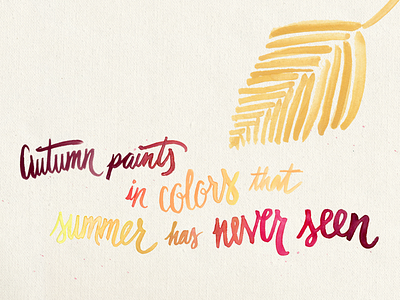 Autumn paints
in colors that
summer has never seen